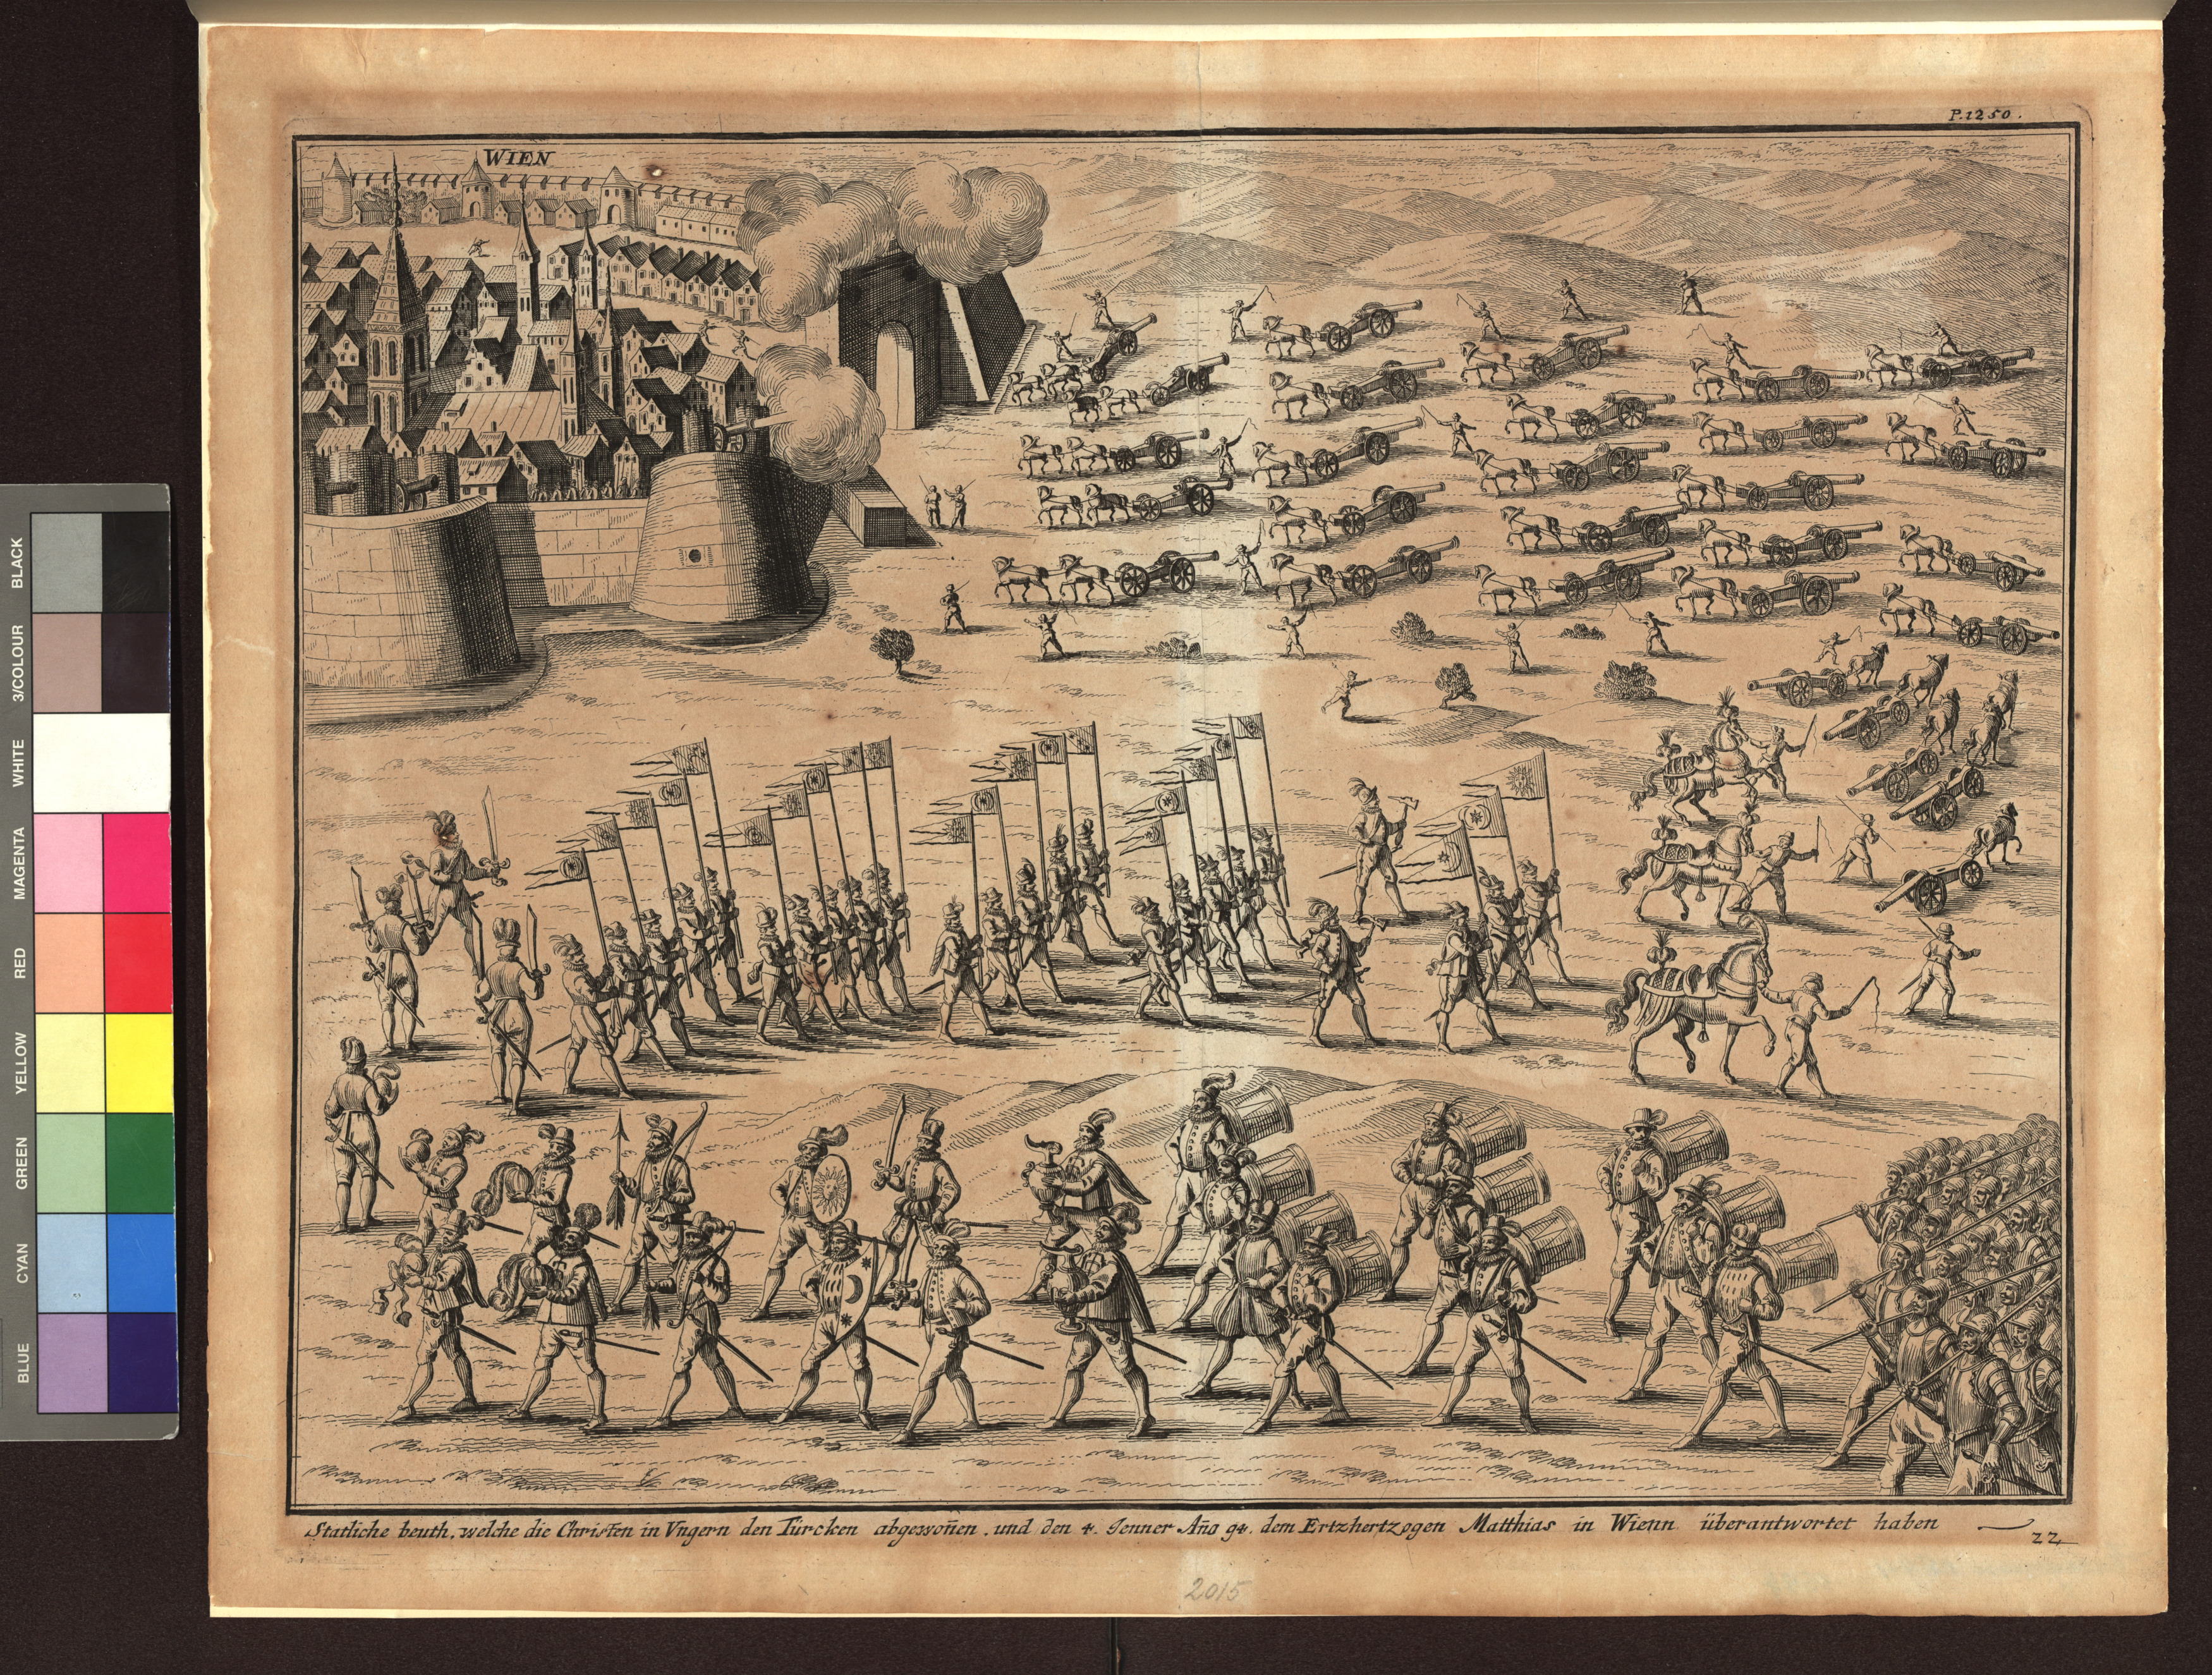 P. 1250.
WIEN
Statliche beuth, welche die Christen in Vngern den Türcken abgewoñen, und den 4. Jenner Año 94. dem Ertzhertzogen Matthias in Wienn überantwortet haben
22
2015
BLACK
3/COLOUR
WHITE
MAGENTA
RED
YELLOW
GREEN
CYAN
BLUE